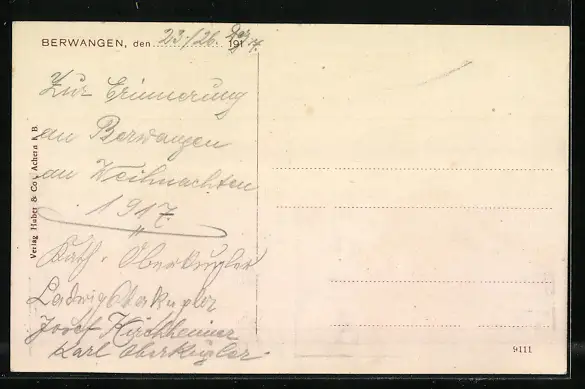 BERWANGEN, den 23./26. Dez. 1917.
Zur Erinnerung
an Berwangen
an Weihnachten
1917.
Kath. Oberkugler
Ludwig Oberkugler
Josef Kirchheimer
Karl Oberkugler.
Verlag Huber & Co., Achern i. B.
9111